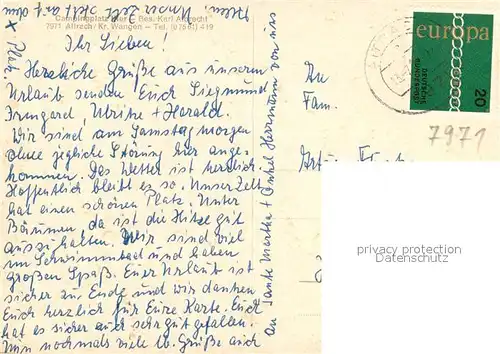 Campingplatz Iller - Bes. Karl Albrecht
7971 Aitrach/ Kr. Wangen - Tel. (07561) 419
Ihr Lieben!
Herzliche Grüße aus unserem
Urlaub senden Euch Siegmund
Irmgard, Ulrike + Harald.
Wir sind am Samstagmorgen
ohne jegliche Störung hier ange-
kommen. Das Wetter ist herrlich
Hoffentlich bleibt es so. Unser Zelt
hat einen schönen Platz. Unter
Bäumen, da ist die Hitze gut
auszuhalten. Wir sind viel
im Schwimmbad und haben
großen Spaß. Euer Urlaub ist
sicher zu Ende und wir danken
Euch herzlich für Eure Karte. Euch
hat es sicher auch sehr gut gefallen.
Nun nochmals viele lb. Grüße auch
an Tante Martha + Onkel Hermann von uns
An
Fam.
europa
DEUTSCHE
BUNDESPOST
20
7971
privacy protection
Datenschutz